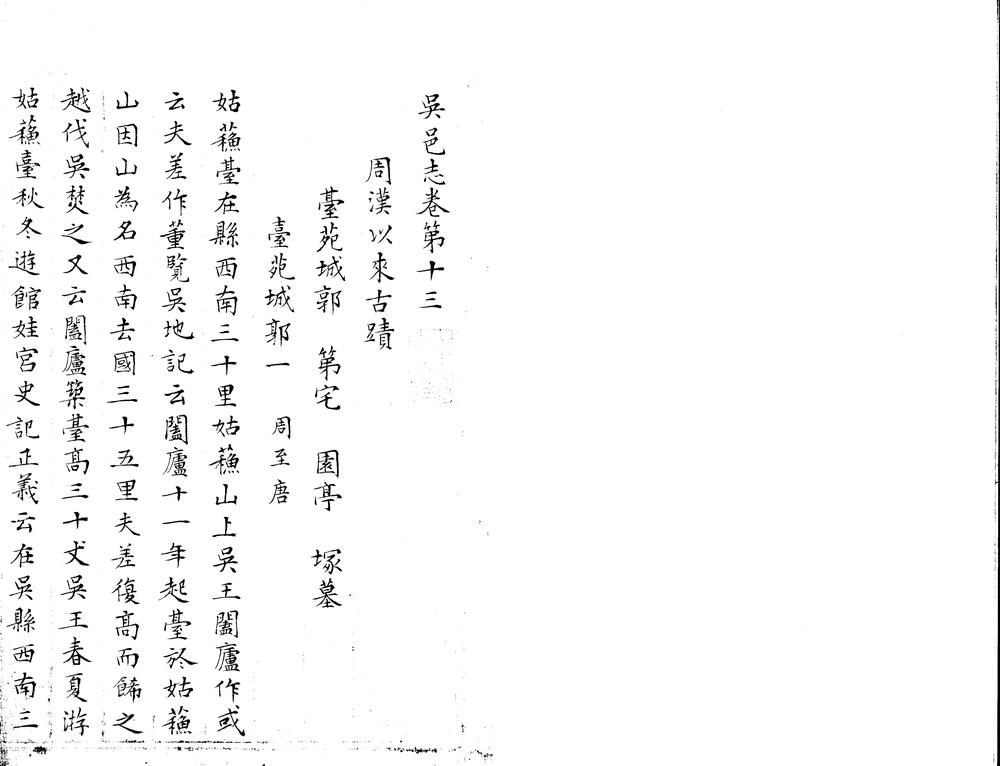 吳邑志卷第十三
周漢以來古蹟
臺苑城郭 第宅 園亭 塚墓
臺苑城郭一 周至唐
姑蘓臺在縣西南三十里姑蘓山上吳王闔廬作或
云夫差作董覽吳地記云闔廬十一年起臺於姑蘓
山因山為名西南去國三十五里夫差復髙而餙之
越伐吳焚之又云闔廬築臺髙三十丈吳王春夏游
姑蘓臺秋冬遊館娃宮史記正義云在吳縣西南三